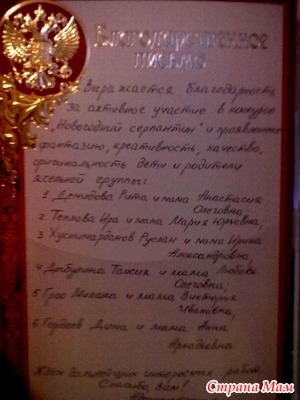 Благодарственное
письмо
Выражается благодарность
за активное участие в конкурсе
"Новогодний серпантин" и проявленную
фантазию, креативность, качество,
оригинальность дети и родители
ясельной группы:
1 Демидова Рита и мама Анастасия
Олеговна,
2 Теплова Ира и мама Мария Юрьевна,
3 Хуснимарданов Руслан и мама Ирина
Александровна,
4 Таисия и мама Любовь
Олеговна,
5 Грос Милана и мама Виктория
Ивановна,
6 Гордеев Дима и мама Анна
Аркадьевна
Ждем дальнейших интересных работ
Спасибо Вам!
Страна Мам